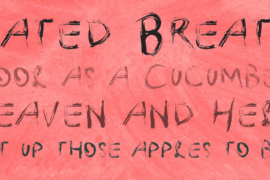 ATED BREAT
OOR AS A CUCUMBE
EAVEN AND HER
T UP THOSE APPRES TO B